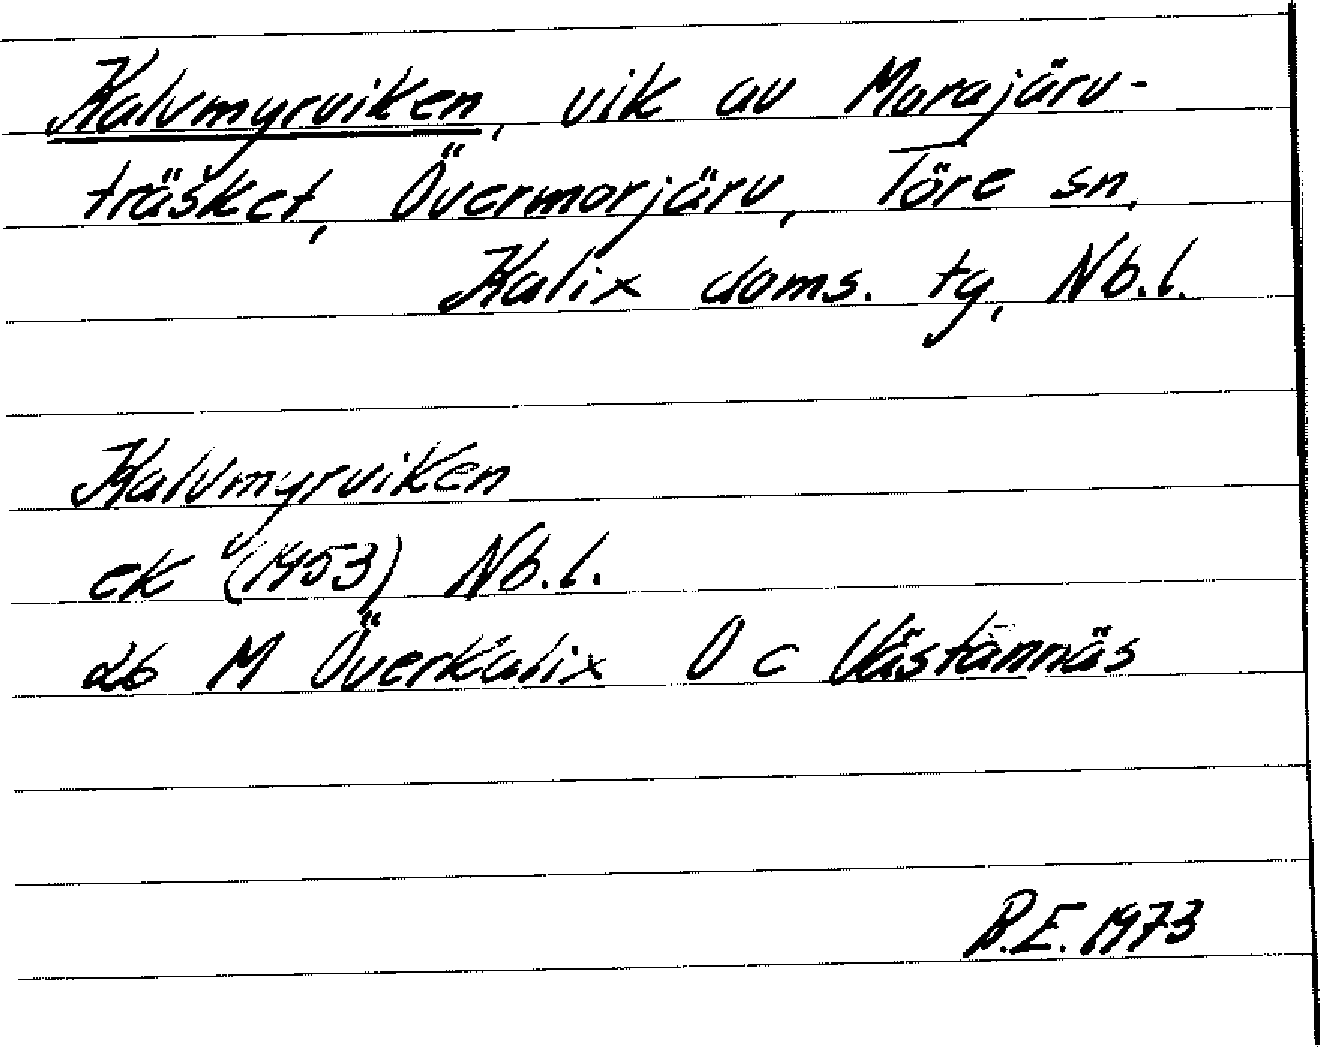 Kalvmyrviken, vik av Morajärv-
träsket, Övermorjärv, Töre sn,
Kalix doms. tg, Nb.l.
Kalvmyrviken
ek (1953) Nb.l.
26 M Överkalix 0 c Västannäs
B.E. 1973